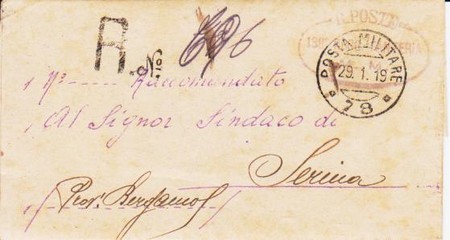 R. POSTA
R. N.º 696
POSTA MILITARE
29.1.19
78
Nº Raccomandato
Al Signor Sindaco di
Serina
Prov. Bergamo